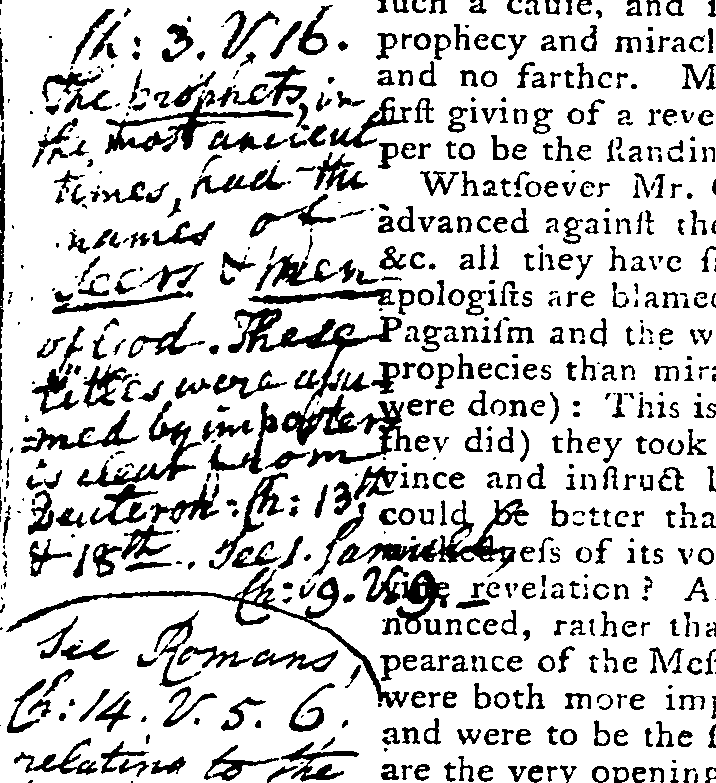 Ch: 3. V. 16.
The prophets, in
the most ancient
times, had the
names of
Seers & Men
of God. These
titles were assu-
=med by imposters
is clear from
Deuteron: Ch: 13,th
& 18th. See 1. Samuel
Ch: 9. V. 9.
See Romans,
Ch: 14. V. 5. 6.
relating to the
ſuch a cauſe, and
prophecy and miracl
and no farther. M
firſt giving of a reve
per to be the ſtandin
Whatſoever Mr.
advanced againſt the
&c. all they have ſ
apologiſts are blamed
Paganiſm and the w
prophecies than mira
were done): This is
they did) they took
vince and inſtruct
could be better tha
wickedneſs of its vo
vine revelation? A
nounced, rather tha
pearance of the Meſ
were both more imp
and were to be the ſ
are the very opening